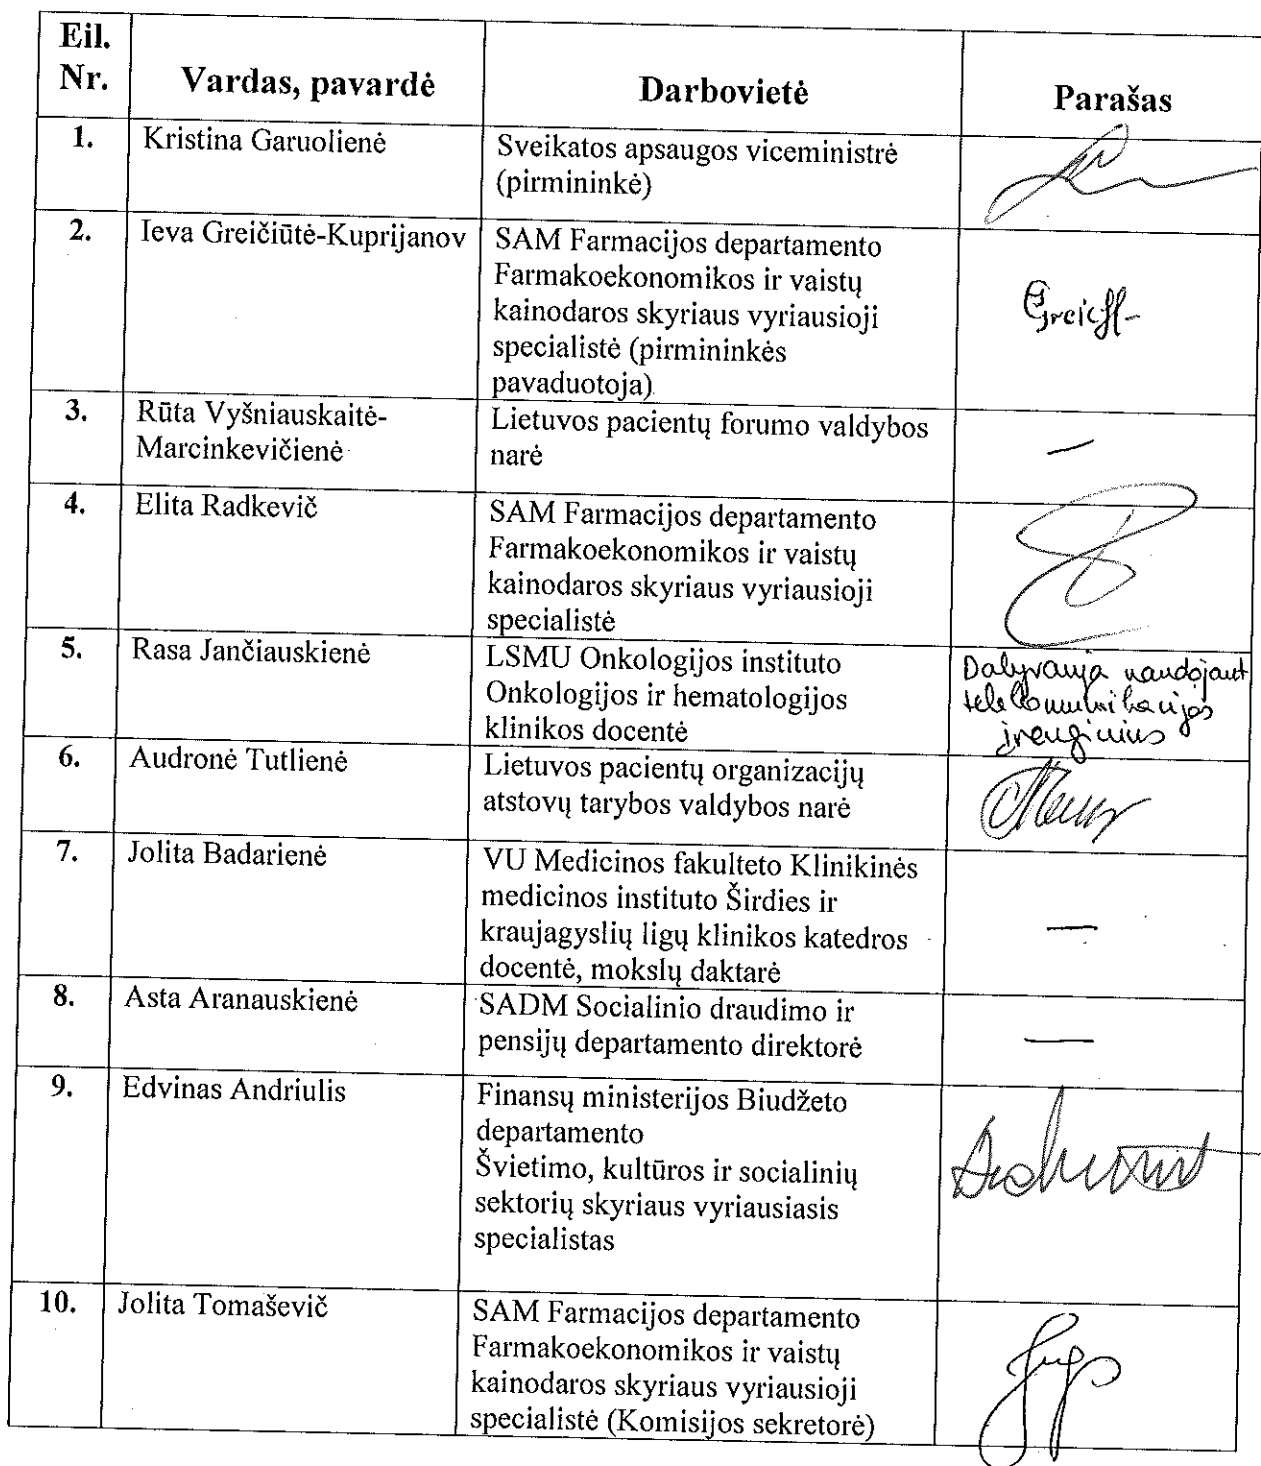 Eil. Nr.
Vardas, pavardė
Darbovietė
Parašas
1.
Kristina Garuolienė
Sveikatos apsaugos viceministrė
(pirmininkė)
2.
Ieva Greičiūtė-Kuprijanov
SAM Farmacijos departamento
Farmakoekonomikos ir vaistų
kainodaros skyriaus vyriausioji
specialistė (pirmininkės
pavaduotoja)
3.
Rūta Vyšniauskaitė-
Marcinkevičienė
Lietuvos pacientų forumo valdybos
narė
—
4.
Elita Radkevič
SAM Farmacijos departamento
Farmakoekonomikos ir vaistų
kainodaros skyriaus vyriausioji
specialistė
5.
Rasa Jančiauskienė
LSMU Onkologijos instituto
Onkologijos ir hematologijos
klinikos docentė
Dalyvauja naudojant
telekomunikacijos
įrenginius
6.
Audronė Tutlienė
Lietuvos pacientų organizacijų
atstovų tarybos valdybos narė
7.
Jolita Badarienė
VU Medicinos fakulteto Klinikinės
medicinos instituto Širdies ir
kraujagyslių ligų klinikos katedros
docentė, mokslų daktarė
—
8.
Asta Aranauskienė
SADM Socialinio draudimo ir
pensijų departamento direktorė
—
9.
Edvinas Andriulis
Finansų ministerijos Biudžeto
departamento
Švietimo, kultūros ir socialinių
sektorių skyriaus vyriausiasis
specialistas
10.
Jolita Tomaševič
SAM Farmacijos departamento
Farmakoekonomikos ir vaistų
kainodaros skyriaus vyriausioji
specialistė (Komisijos sekretorė)